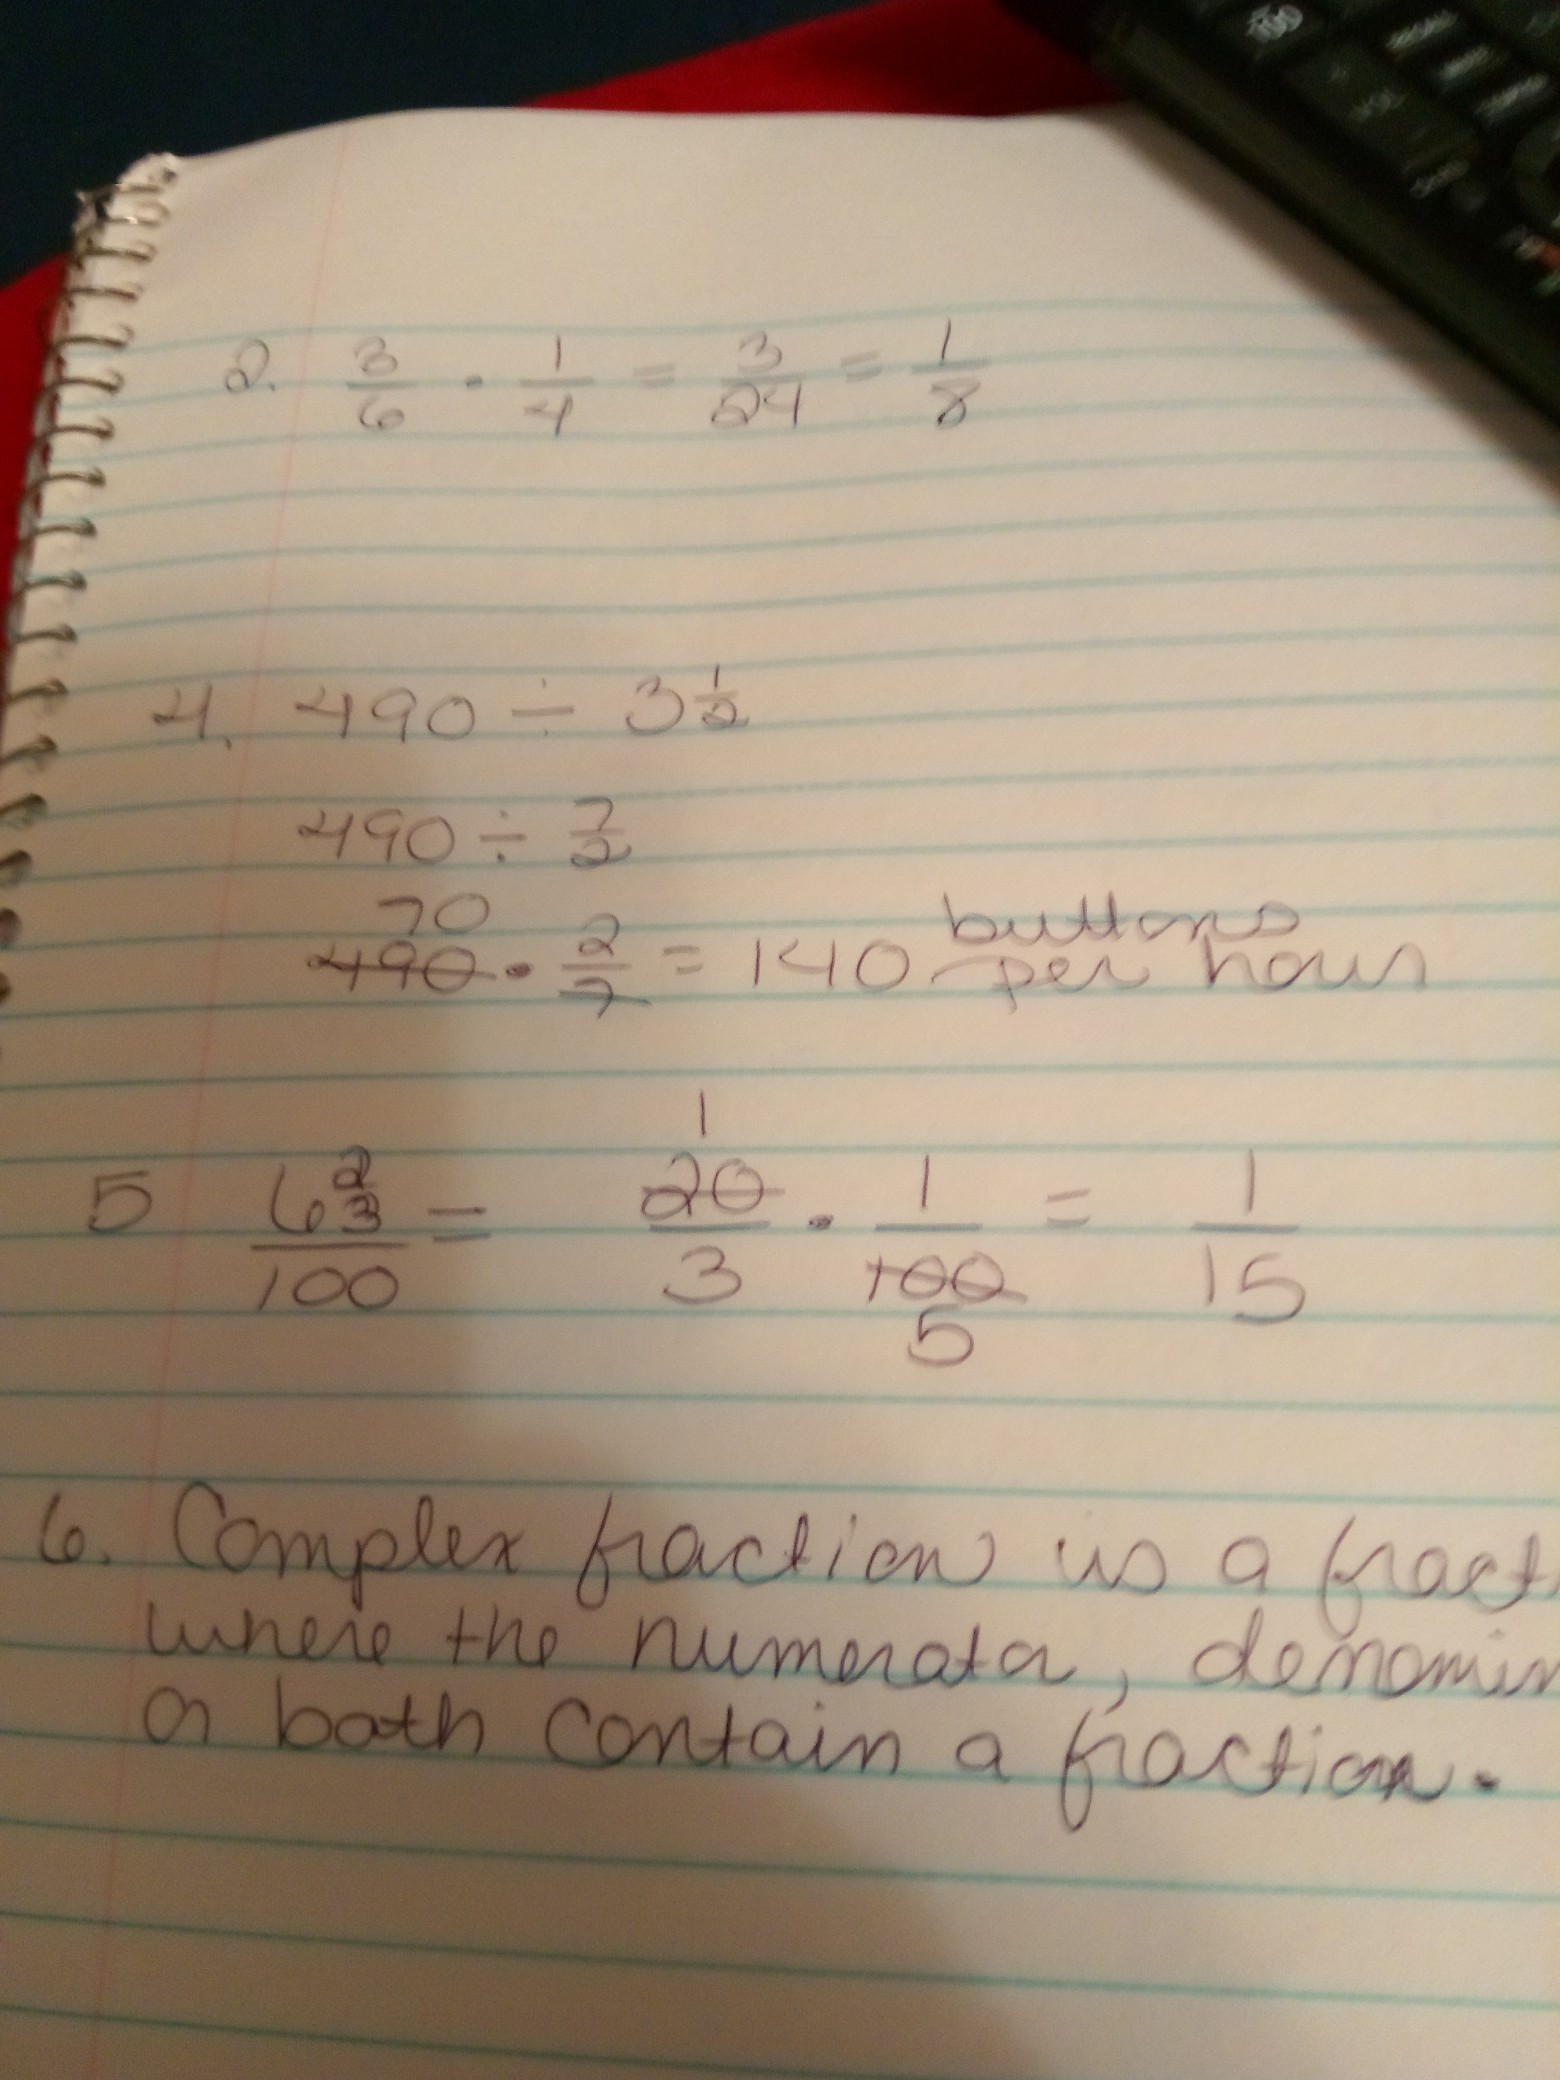 2. 3/6 · 1/4 = 3/24 = 1/8
4. 490 ÷ 3 1/2
490 ÷ 7/2
70
490 · 2/7 = 140 buttons per hour
1
5 6 2/3 / 100 = 20/3 · 1/100 = 1/15
5
6. Complex fraction is a fract
where the numerator, denomin
or both contain a fraction.